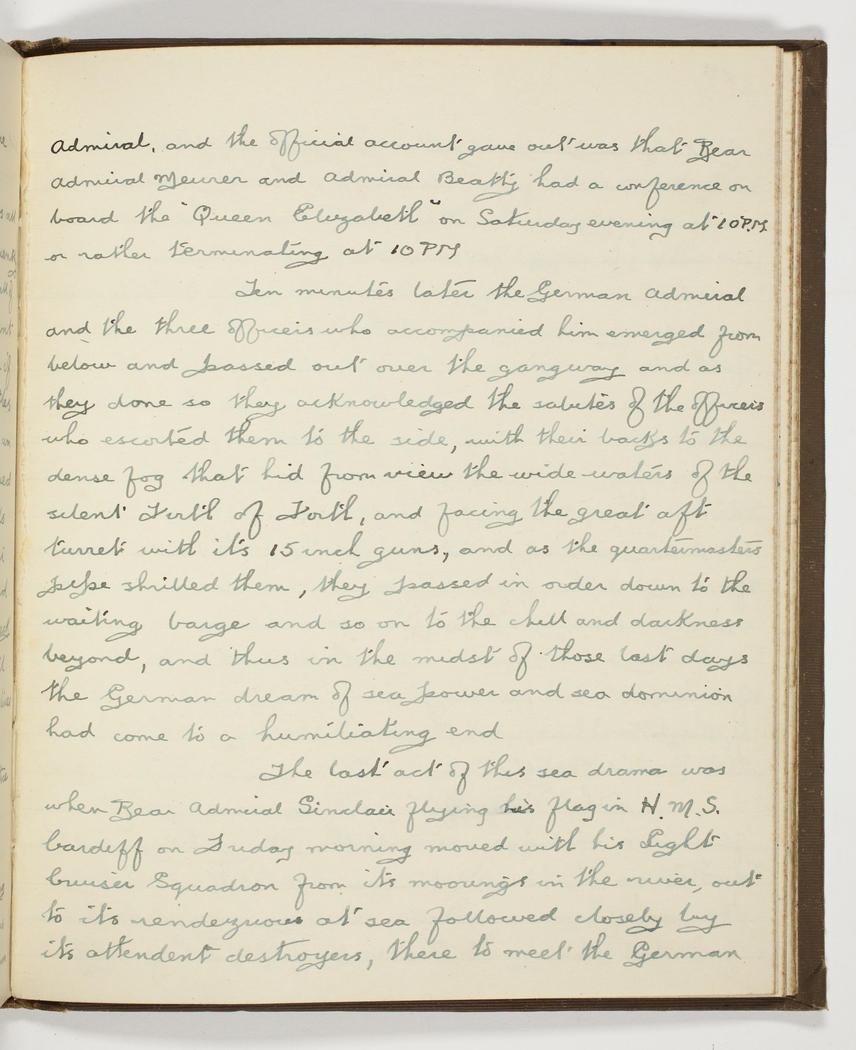 Admiral, and the official account gave out was that Rear
Admiral Meurer and Admiral Beatty had a conference on
board the "Queen Elizabeth" on Saturday evening at 10 P.M.
or rather terminating at 10 PM
Ten minutes later the German Admiral
and the three officers who accompanied him emerged from
below and passed out over the gangway and as
they done so they acknowledged the salutes of the officers
who escorted them to the side, with their backs to the
dense fog that hid from view the wide waters of the
silent Firth of Forth, and facing the great aft
turret with its 15 inch guns, and as the quartermasters
pipe shrilled them, they passed in order down to the
waiting barge and so on to the chill and darkness
beyond, and thus in the midst of those last days
the German dream of sea power and sea dominion
had come to a humiliating end
The last act of this sea drama was
when Rear Admiral Sinclair flying his flag in H.M.S.
Cardiff on Friday morning moved with his Light
Cruiser Squadron from its moorings in the river, out
to its rendezvous at sea followed closely by
its attendent destroyers, there to meet the German